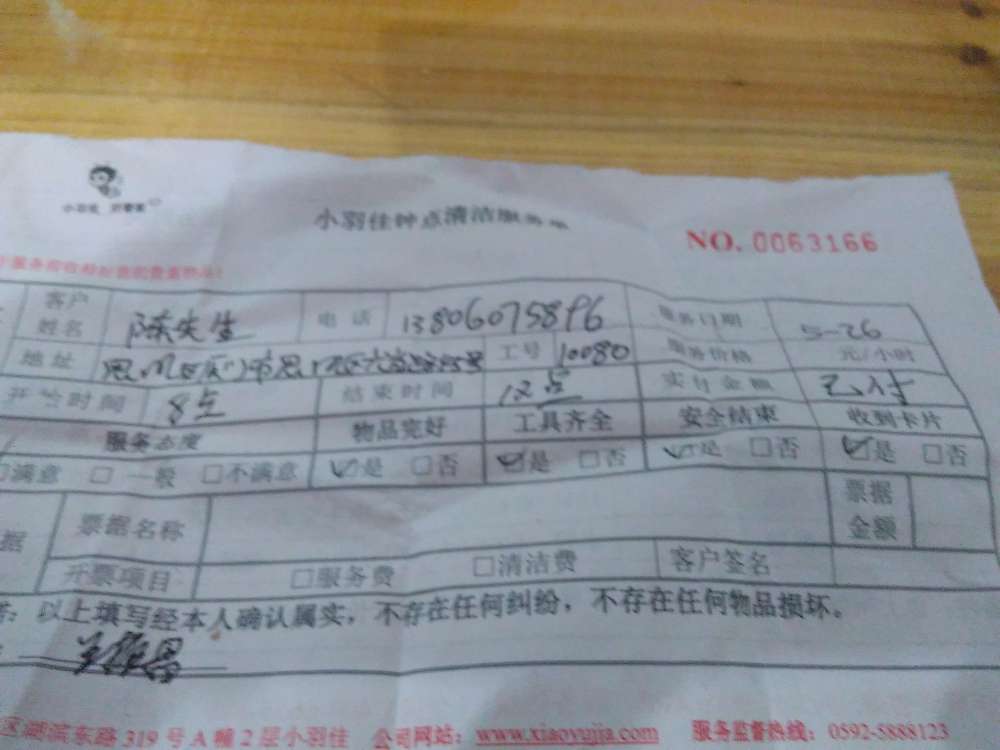 小羽佳
小羽佳钟点清洁服务单
NO. 0063166
客户姓名 陈先生 电话 13806075896 服务日期 5-26
地址 工号 10080 服务价格 元/小时
开始时间 8点 结束时间 12点 实付金额 已付
服务态度 物品完好 工具齐全 安全结束 收到卡片
□满意 □一般 □不满意 ☑是 □否 ☑是 □否 ☑是 □否 ☑是 □否
票据名称 票据金额
开票项目 □服务费 □清洁费 客户签名
以上填写经本人确认属实,不存在任何纠纷,不存在任何物品损坏。
区湖滨东路 319 号 A 幢 2 层小羽佳 公司网站:www.xiaoyujia.com 服务监督热线:0592-5888123